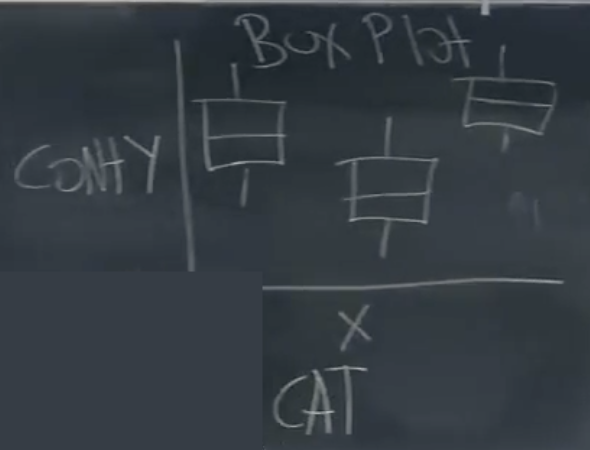 Box Plot
CONT Y
X
CAT